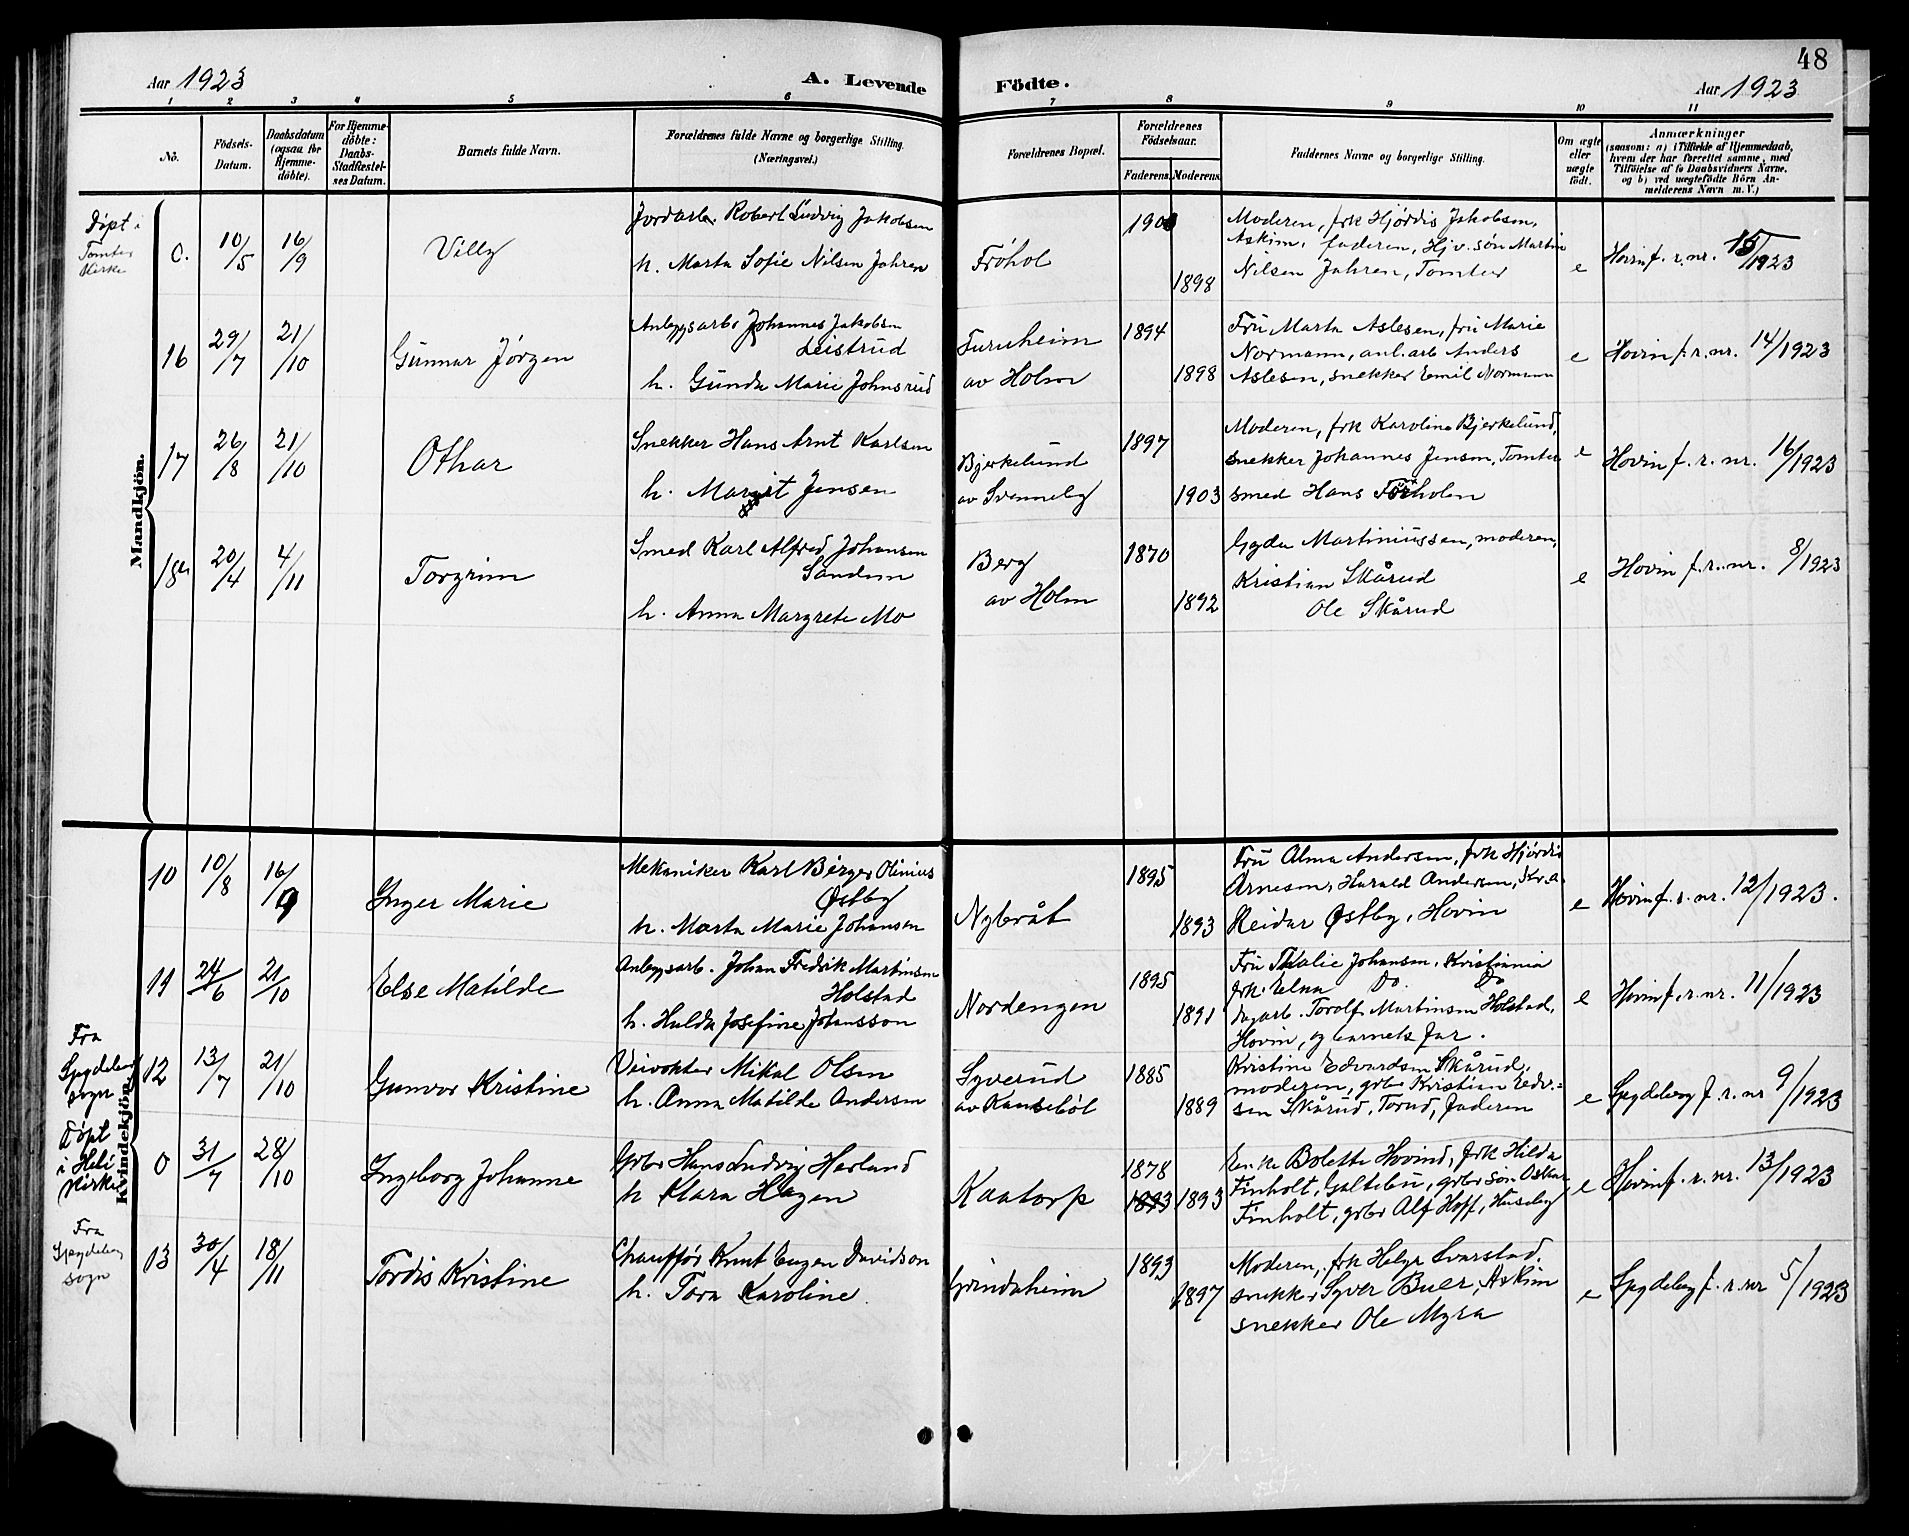 48
Aar 1923
A. Levende
Födte.
Aar 1923
1 2 3 4 5 6 7 8 9 10 11
Nô.
Födsels-
Datum.
Daabsdatum
(ogsaa for
Hjemme-
döbte).
For Hjemme-
döbte:
Daabs-
Stadfæstel-
ses Datum.
Barnets fulde Navn.
Forældrenes fulde Navne og borgerlige Stilling.
(Næringsvei.)
Forældrenes Bopæl.
Forældrenes
Födselsaar.
Faderens. Moderens.
Faddernes Navne og borgerlige Stilling.
Om ægte
eller
uægte
födt.
Anmærkninger
(saasom: a) i Tilfælde af Hjemmedaab,
hvem der har forrettet samme, med
Tilföielse af to Daabsvidners Navne.
og b) ved uægtefödte Börn An-
melderens Navn m. V.)
Mandkjön.
Døpt i
Tomter
Kirke
0. 10/5 16/9
Villy
Jordarb. Robert Ludvig Jakobsen
h. Marta Sofie Nilsen Jahren
Fróhol
1898
Moderen, frk Hjørdis Jakobsen,
Askim, faderen, Hjv. søn Martin
Nilsen Jahren, Tomter
e
Hovin f. r. nr. 15/1923
16 29/7 21/10
Gunnar Jørgen
Anlegsarb Johannes Jakobsen
Leistrud
h. Gunda Marie Johnsrud
Furuheim
av Holm
1894
1898
Fru Marta Aslesen, fru Marie
Normann, anl. arb Anders
Aslesen, snekker Emil Normann
e
Hovin f. r. nr. 14/1923
17 26/8 21/10
Othar
Snekker Hans Arnt Karlsen
h. Margit Jensen
Bjerkelund
av Svenneby
1897
1903
Moderen, frk Karoline Bjerkelund,
snekker Johannes Jensen, Tomter
smed Hans
e
Hovin f. r. nr. 16/1923
18 20/4 4/11
Torgrim
Smed Karl Alfred Johansen
Sandem
h. Anna Margrete Mo
Berg
av Holm
1870
1892
Gyda Martiniussen, moderen,
Kristian Skårud
Ole Skårud
e
Hovin f. r. nr. 8/1923
Kvindekjön.
10 10/8 16/9
Inger Marie
Mekaniker Karl Birger Olinius
Østby
h. Marta Marie Johansen
Nybråt
1895
1893
Fru Alma Andersen, frk Hjørdis
Arnesen, Harald Andersen, Kr.a.
Reidar Østby, Hovin
e
Hovin f. r. nr. 12/1923.
11 24/6 21/10
Else Matilde
Anlegsarb. Johan Fredrik Martinsen
Holstad
h. Hulda Josefine Johansson
Nordengen
1895
1891
Fru Thalie Johansen, Kristiania
frk. Elna Do. Do
Torolf Martinsen Holstad,
Hovin, og barnets far.
e
Hovin f. r. nr. 11/1923
Fra
Spydeberg
sogn
12 13/7 21/10
Gunvor Kristine
Veivokter Mikal Olsen
h. Anna Matilde Andersen
Syverud
av Kansebøl
1885
1889
Kristine Edvardsen Skårud,
moderen, grbr Kristian Edv.-
sen Skårud, Torud, faderen
e
Spydeberg f. r. nr 9/1923
Døpt
i Heli
Kirke
0 31/7 28/10
Ingeborg Johanne
Grbr Hans Ludvig Herland
h Klara Hagen
Kaatorp
1878
1893 1893
Enke Bolette Hovind, frk Hilda
Finholt, Galtebu, grbr søn Oskar
Finholt, grbr Alf Hoff, Huseby
e
Hovin f. r. nr. 13/1923
Fra
Spydeberg
sogn
13 30/4 18/11
Tordis Kristine
Chauffør Knut Eugen Davidson
h. Tora Karoline.
Grindaheim
1893
1897
Moderen, frk Helga Svarstad,
snekker Syver Buer, Askim
snekker Ole Myra
e
Spydeberg f. r. nr 5/1923